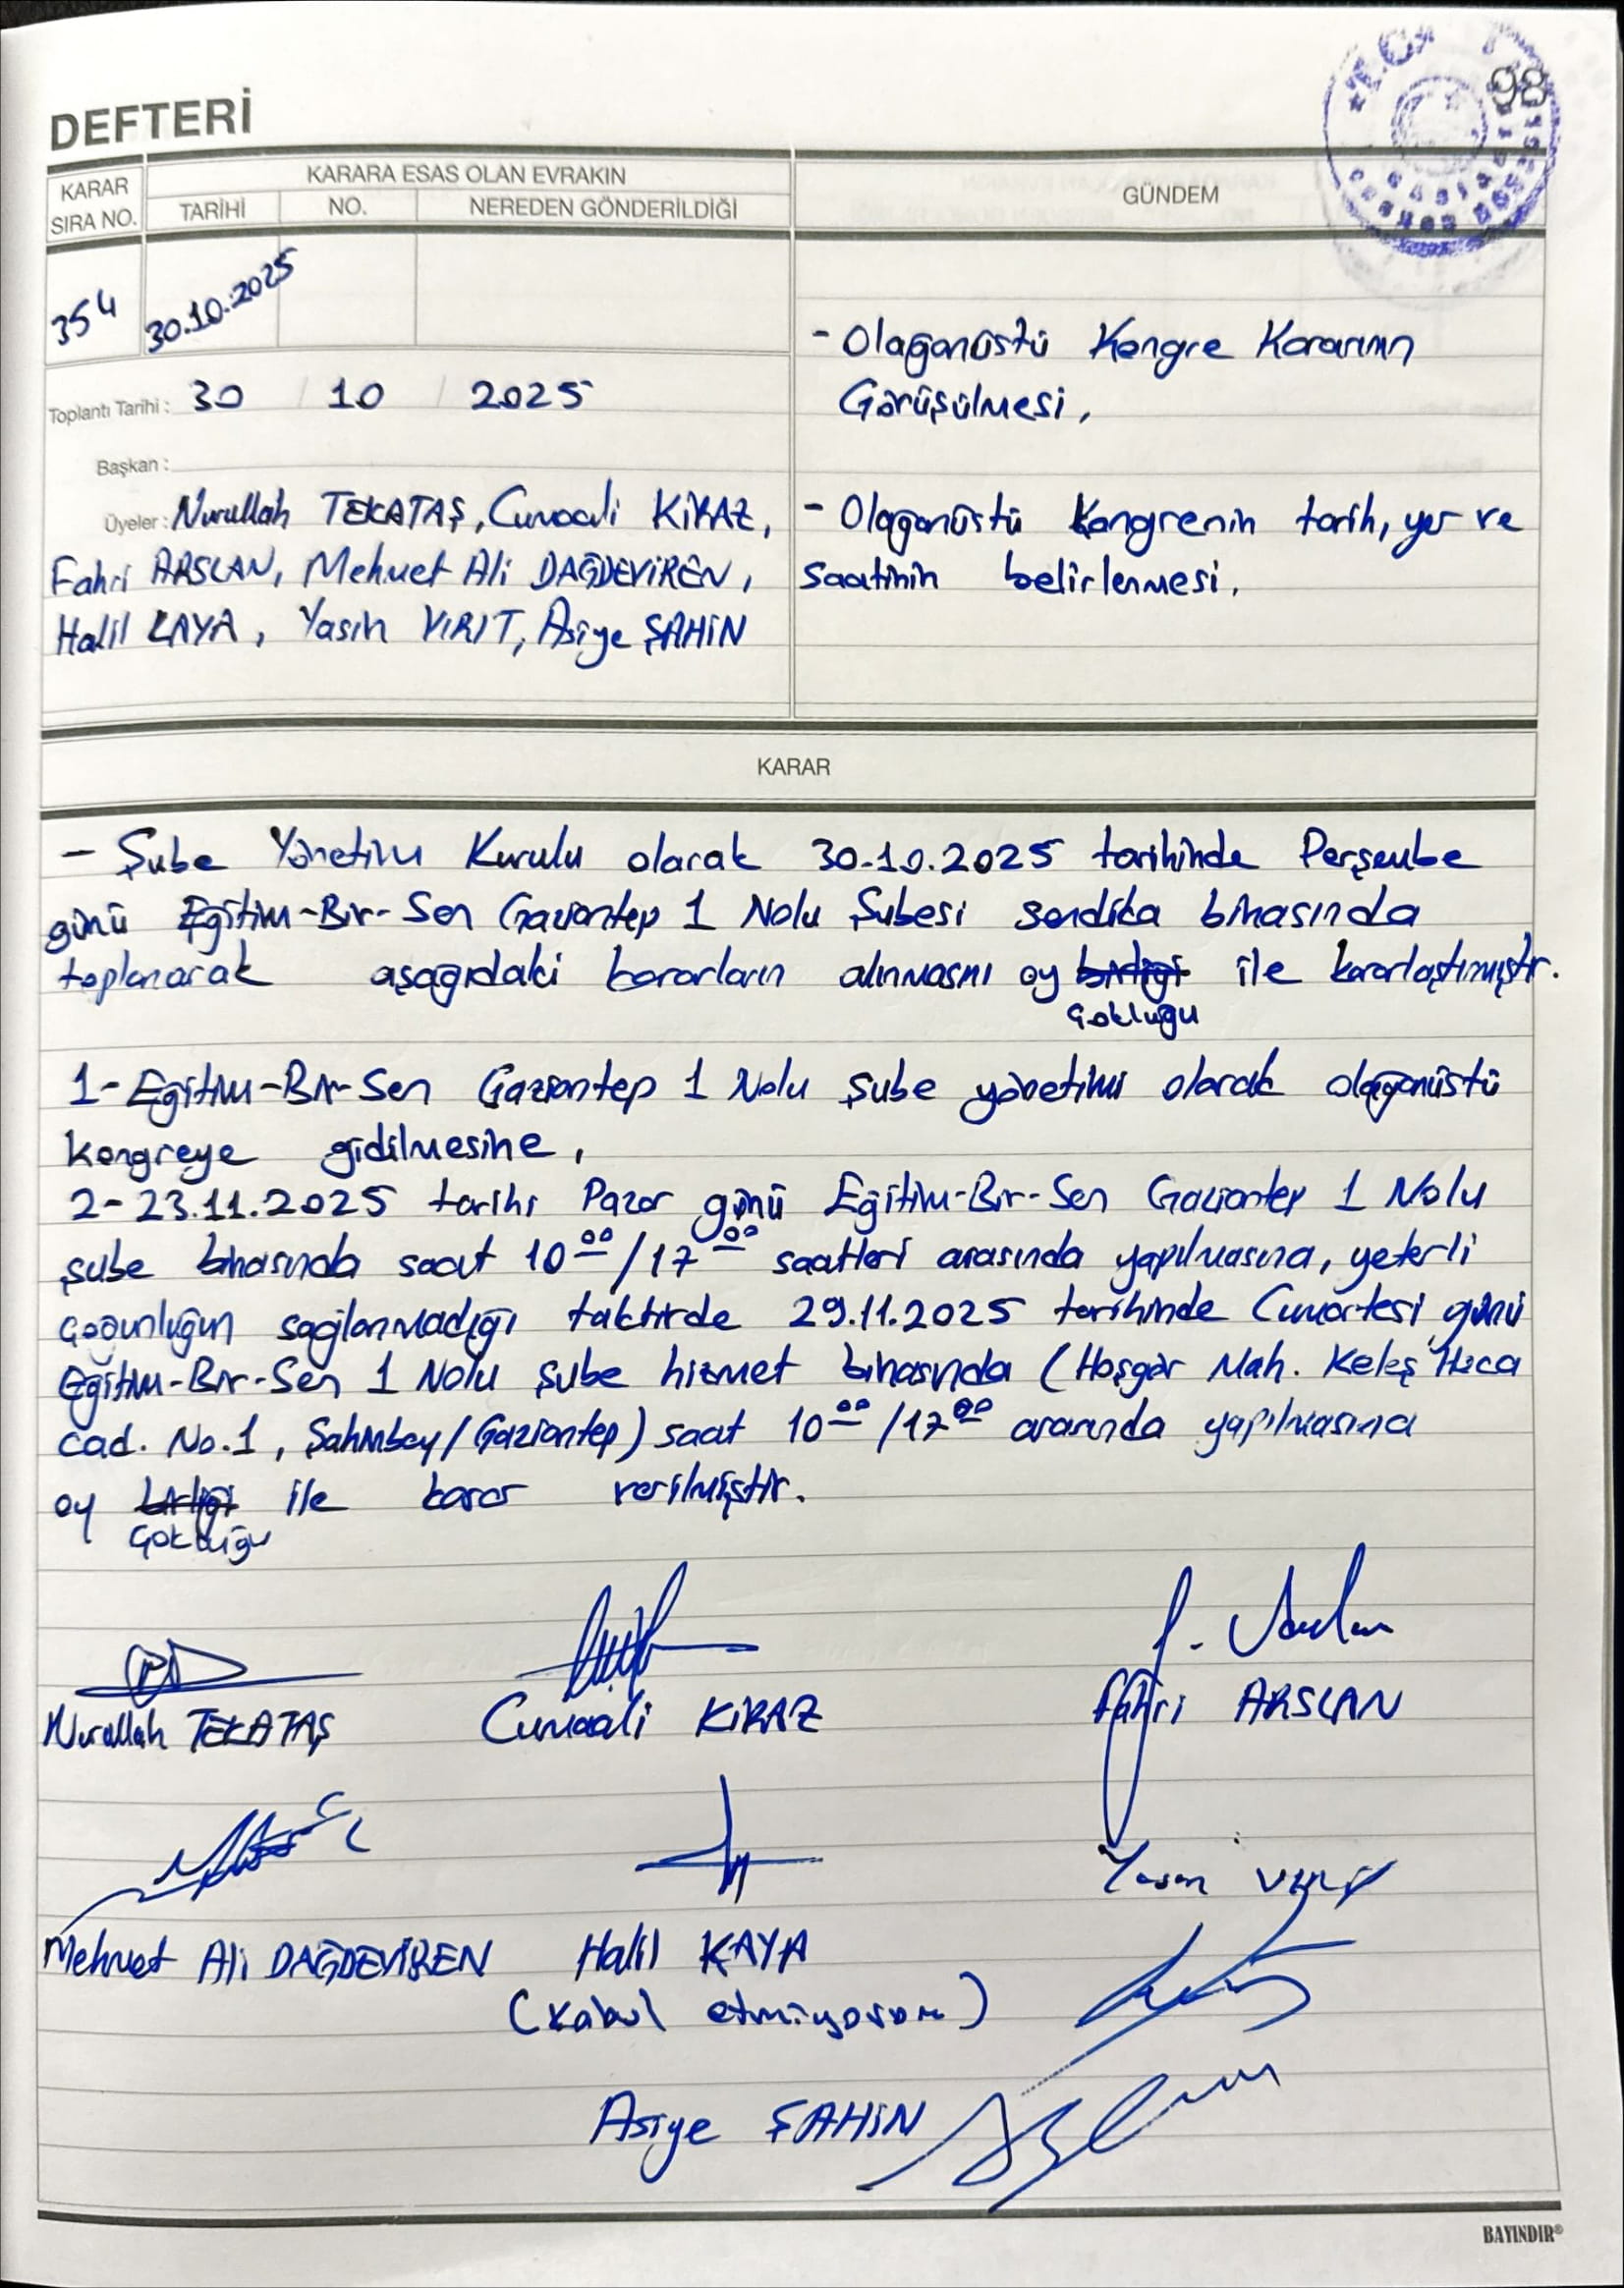 98
DEFTERİ
KARAR SIRA NO.
KARARA ESAS OLAN EVRAKIN
TARİHİ NO. NEREDEN GÖNDERİLDİĞİ
GÜNDEM
354 30.10.2025
Toplantı Tarihi: 30 / 10 / 2025
Başkan :
Üyeler: Nurullah TEKATAŞ, Cumaali KİRAZ,
Fahri ARSLAN, Mehmet Ali DAĞDEVİREN,
Halil KAYA, Yasin VIRIT, Asiye ŞAHİN
- Olağanüstü Kongre Kararının
Görüşülmesi,
- Olağanüstü Kongrenin tarih, yer ve
saatinin belirlenmesi.
KARAR
- Şube Yönetim Kurulu olarak 30.10.2025 tarihinde Perşembe
günü Eğitim-Bir-Sen Gaziantep 1 Nolu Şubesi sendika binasında
toplanarak aşağıdaki kararların alınmasını oy birliği ile kararlaştırmıştır.
çokluğu
1- Eğitim-Bir-Sen Gaziantep 1 Nolu Şube yönetimi olarak olağanüstü
kongreye gidilmesine,
2- 23.11.2025 tarihi Pazar günü Eğitim-Bir-Sen Gaziantep 1 Nolu
şube binasında saat 10.00/17.00 saatleri arasında yapılmasına, yeterli
çoğunluğun sağlanmadığı taktirde 29.11.2025 tarihinde Cumartesi günü
Eğitim-Bir-Sen 1 Nolu şube hizmet binasında (Hoşgör Mah. Keleş Hoca
cad. No.1, Şahinbey/Gaziantep) saat 10.00/17.00 arasında yapılmasına
oy birliği ile karar verilmiştir.
çokluğu
Nurullah TEKATAŞ Cumaali KİRAZ Fahri ARSLAN
Yasin VIRIT
Mehmet Ali DAĞDEVİREN Halil KAYA
(Kabul etmiyorum)
Asiye ŞAHİN
BAYINDIR®